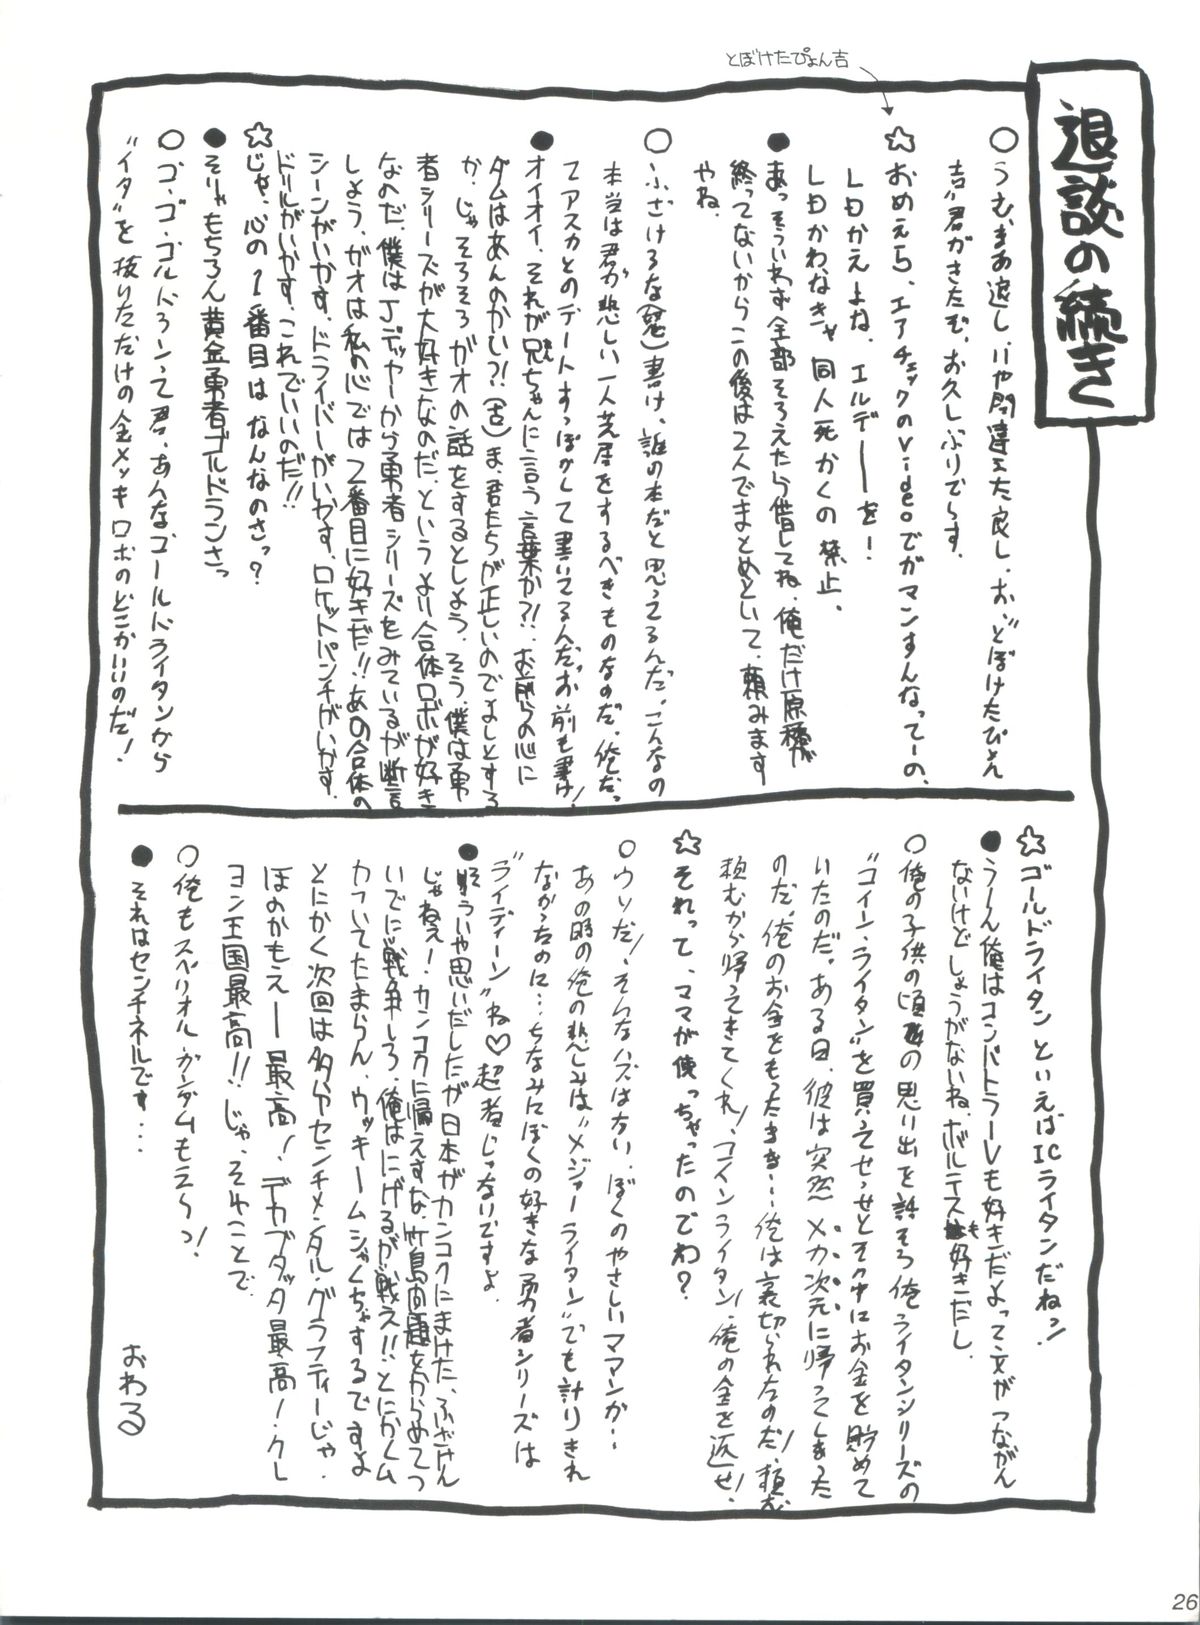 退談の続き
とぼけたぴょん吉
○うむまあ退し、いや間違えた良し、お、〝とぼけたぴょん
吉〟君がきたぞ。お久しぶりでーす。
☆おめえら、エアチェックのVideoでガマンすんなってーの、
LDかえよね、エルデーーを！
LDかわなきゃ同人死かくの禁止、
●あっそういわず全部そろえたら借してね、俺だけ原稿が
終ってないからこの後は2人でまとめといて、頼みます
やね。
○ふざけるな(怒)書け、誰の本だと思ってるんだ。こんなの
本当は君が悲しい一人芝居をするべきものなのだ。俺だっ
てアスカとのデートすっぽかして書いてるんだ。お前も書け！
●オイオイ、それが兄ちゃんに言う言葉か?!、お前らの心に
ダムはあんのかい?!(古)ま、君たちが正しいのでよしとする
か、じゃそろそろガオの話をするとしよう。そう、僕は勇
者シリーズが大好きなのだ、というより合体ロボが好き
なのだ、僕はJデッカーから勇者シリーズをみているが断言
しよう、ガオは私の心では2番目に好きだ!!あの合体の
シーンがいかす、ドライバーがいかす、ロケットパンチがいかす、
ドリルがいかす、これでいいのだ!!
☆じゃ、心の1番目はなんなのさっ？
●そりゃもちろん黄金勇者ゴルドランさっ
○ゴ・ゴ・ゴルドランって君、あんなゴールドライタンから
〝イタ〟を抜いただけの金メッキロボのどこがいいのだ！
☆ゴールドライタンといえばICライタンだねッ！
●うーん俺はコンバトラーVも好きだよって文がつながん
ないけどしょうがないね、ボルテスも好きだし、
○俺の子供の頃の思い出を話そう俺、ライタンシリーズの
〝コイン・ライタン〟を買ってせっせとその中にお金を貯めて
いたのだ。ある日、彼は突然メカ次元に帰ってしまった
のだ。俺のお金をもったまま…俺は裏切られたのだ！頼む
頼むから帰ってきてくれ！コインライタン！俺の金を返せ！
☆それって、ママが使っちゃったのでわ？
○ウソだ！そんなハズはない。ぼくのやさしいママンが…
あの時の俺の悲しみは〝メジャーライタン〟でも計りきれ
なかったのに…ちなみにぼくの好きな勇者シリーズは
〝ライディーン〟ね♡超者じゃないですよ
●そういや思いだしたが日本がカンコクにまけた、ふざけん
じゃねえ！カンコクに帰えすな、竹島問題をからめてつ
いでに戦争しろ、俺はにげるが戦え!!とにかくム
カついてたまらん、ウッキームシャくちゃするですよ
とにかく次回は多分センチメンタル・グラフティーじゃ、
ほのかもえー最高！デカブタッタ最高！クレ
ヨン王国最高!!じゃ、そゆことで
○俺もスペリオル・ガンダムもえーっ！
●それはセンチネルです…
おわる
26